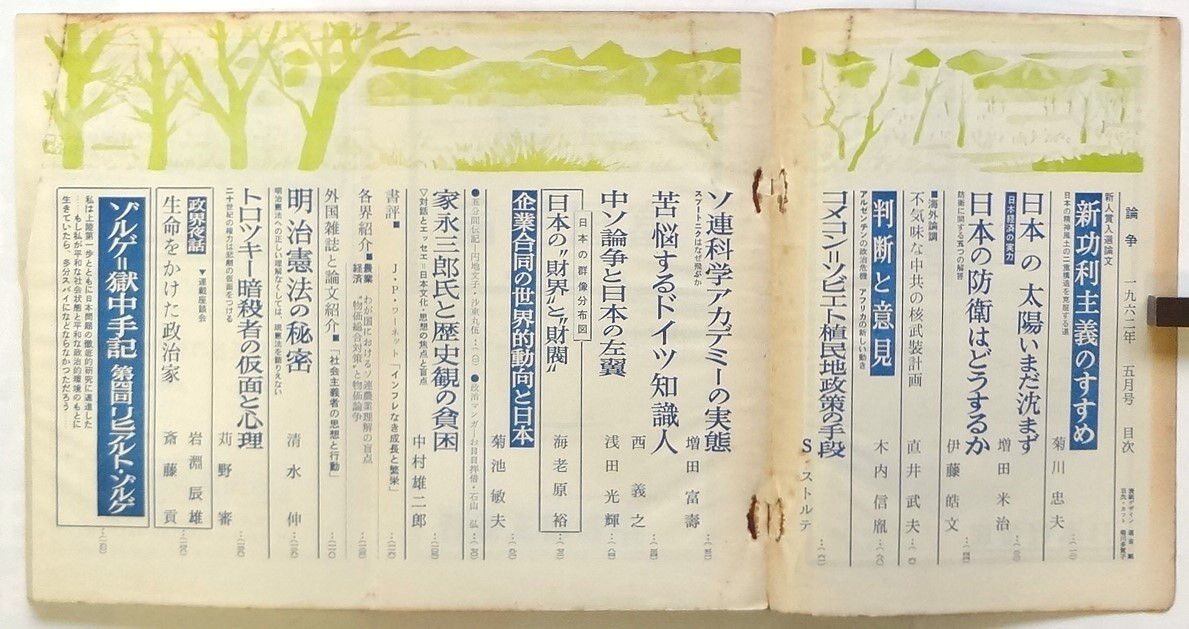 論争 一九六二年 五月号 目次
新人賞入選論文
新功利主義のすすめ
日本の精神風土の二重構造を克服する道
菊川忠夫
日本の太陽いまだ沈まず
日本経済の実力
増田米治
日本の防衛はどうするか
防衛に関する五つの解答
伊藤皓文
■海外論調
不気味な中共の核武装計画
直井武夫
判断と意見
アルゼンチンの政治危機 アフリカの新しい動き
木内信胤
コメコン＝ソビエト植民地政策の手段
S・ストルテ
ソ連科学アカデミーの実態
スプートニクはなぜ飛ぶか
増田富壽
苦悩するドイツ知識人
西義之
中ソ論争と日本の左翼
浅田光輝
日本の群像分布図
日本の"財界"と"財閥"
海老原裕
企業合同の世界的動向と日本
菊池敏夫
●五分間伝記・円地文子・沙東九伍
●政治マンガ・お目目拝借・石山弘
家永三郎氏と歴史観の貧困
▽対話とエッセエ＝日本文化・思想の焦点と盲点
中村雄二郎
書評■ J・P・ワーネット「インフレなき成長と繁栄」
各界紹介 ■農業 わが国におけるソ連農業理解の盲点
経済 "物価総合対策"と物価論争
外国雑誌と論文紹介■「社会主義者の思想と行動」
明治憲法の秘密
明治憲法への正しい理解なくしては、現憲法を語りえない
清水伸
トロツキー暗殺者の仮面と心理
二十世紀の権力は悲劇の仮面をつける
苅野審
政界夜話
▼連載座談会
生命をかけた政治家
岩淵辰雄
斎藤貢
ゾルゲ＝獄中手記 第四回 リヒアルト・ゾルゲ
私は上陸第一歩とともに日本問題の徹底的研究に邁進した
……もし私が平和な社会状態と平和な政治的環境のもとに
生きていたら、多分スパイになどならなかつただろう